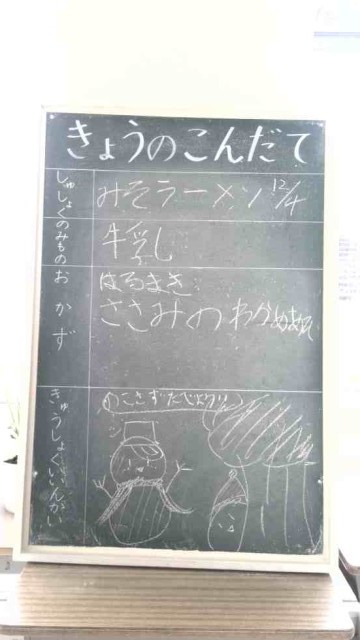 きょうのこんだて
しゅしょく
みそラーメン 12/4
のみもの
牛乳
おかず
はるまき
ささみのわかめあえ
きゅうしょくいいんかい
のこさずたべよう!!